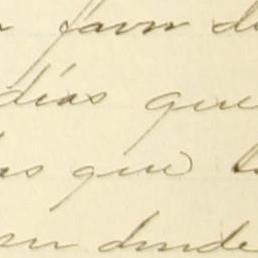 favor d
días que
as que l
donde